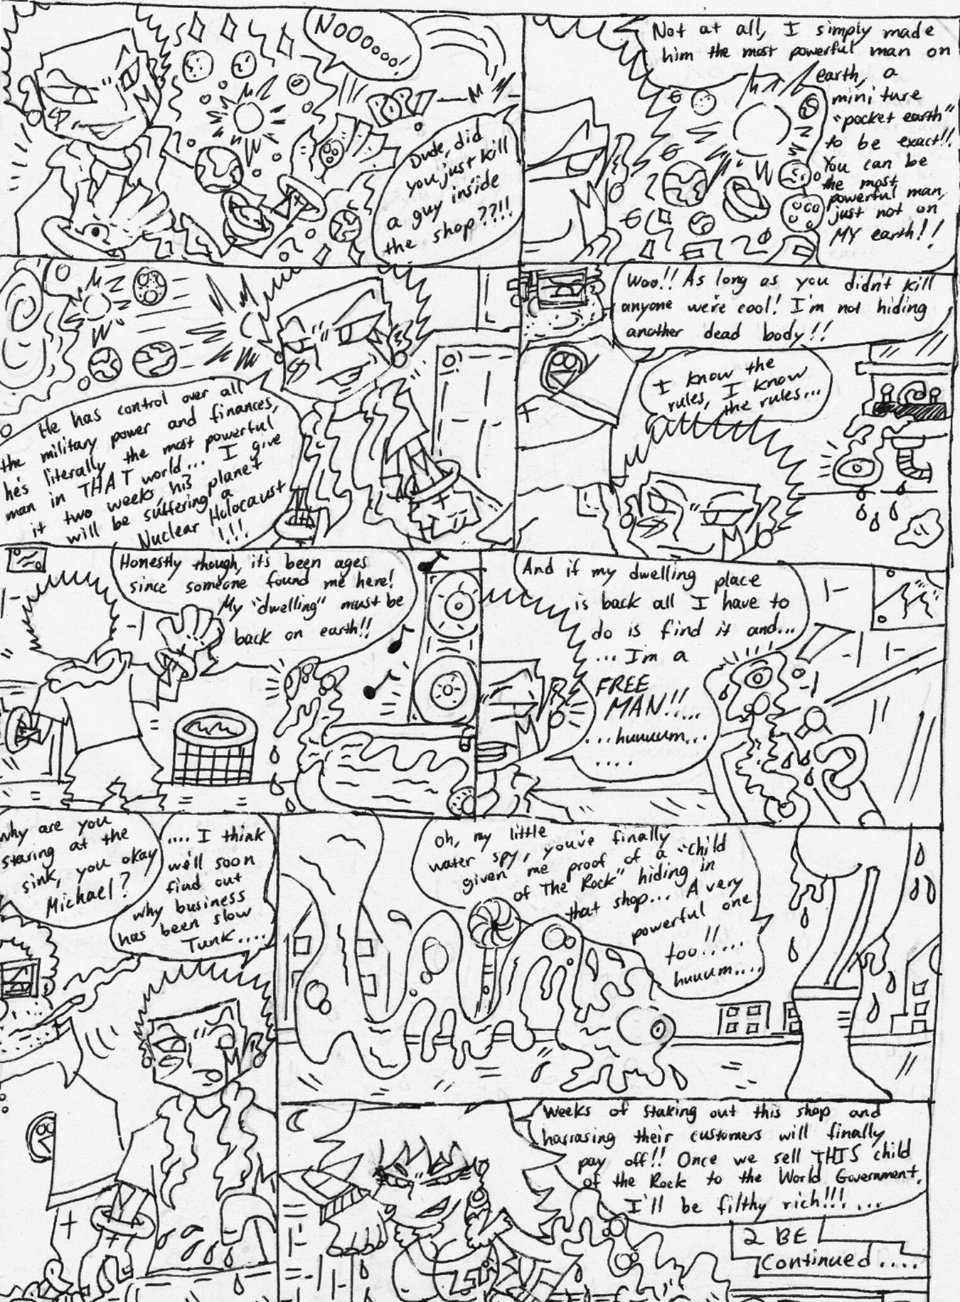 NOOoooo!
Dude, did
you just kill
a guy inside
the shop??!!
Not at all, I simply made
him the most powerful man on
earth, a
miniture
"pocket earth"
to be exact!!
You can be
the most
powerful man,
just not on
MY earth!!
He has control over all
the military power and finances,
he's literally the most powerful
man in THAT world... I give
it two weeks his planet
will be suffering a
Nuclear Holocaust
!!!!
Woo!! As long as you didn't kill
anyone we're cool! I'm not hiding
another dead body!!
I know the
rules, I know
the rules...
Honestly though, it's been ages
since someone found me here!
My "dwelling" must be
back on earth!!
And if my dwelling place
is back all I have to
do is find it and...
... I'm a
FREE
MAN!!...
...huuuum...
....
Why are you
staring at the
sink, you okay
Michael?
.... I think
we'll soon
find out
why business
has been slow
Tunk.....
Oh, my little
water spy, you've finally
given me proof of a "Child
of The Rock" hiding in
that shop... A very
powerful one
too!!...
huuum....
Weeks of staking out this shop and
harrasing their customers will finally
pay off!! Once we sell THIS child
of the Rock to the World Government,
I'll be filthy rich!!!...
2 BE
Continued....